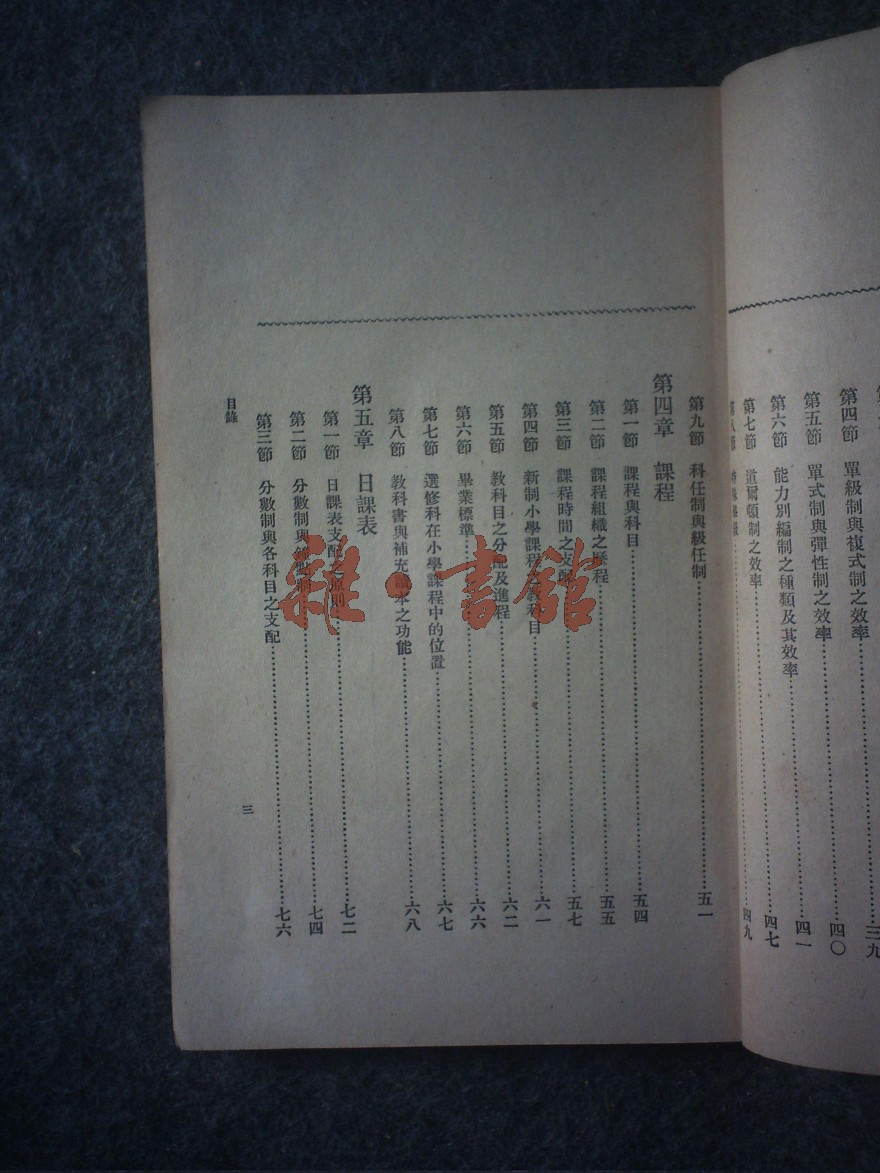 第四節　單級制與複式制之效率……四〇
第五節　單式制與彈性制之效率……四一
第六節　能力別編制之種類及其效率……四七
第七節　道爾頓制之效率……四九
第八節
第九節　科任制與級任制……五一
第四章　課程
第一節　課程與科目……五四
第二節　課程組織之歷程……五五
第三節　課程時間之支配……五七
第四節　新制小學課程之教科目……六一
第五節　教科目之分配及進程……六二
第六節　畢業標準……六六
第七節　選修科在小學課程中的位置……六七
第八節　教科書與補充讀本之功能……六八
第五章　日課表
第一節　日課表支配之原則……七二
第二節　分數制與……七四
第三節　分數制與各科目之支配……七六
目錄
三
雜·書館